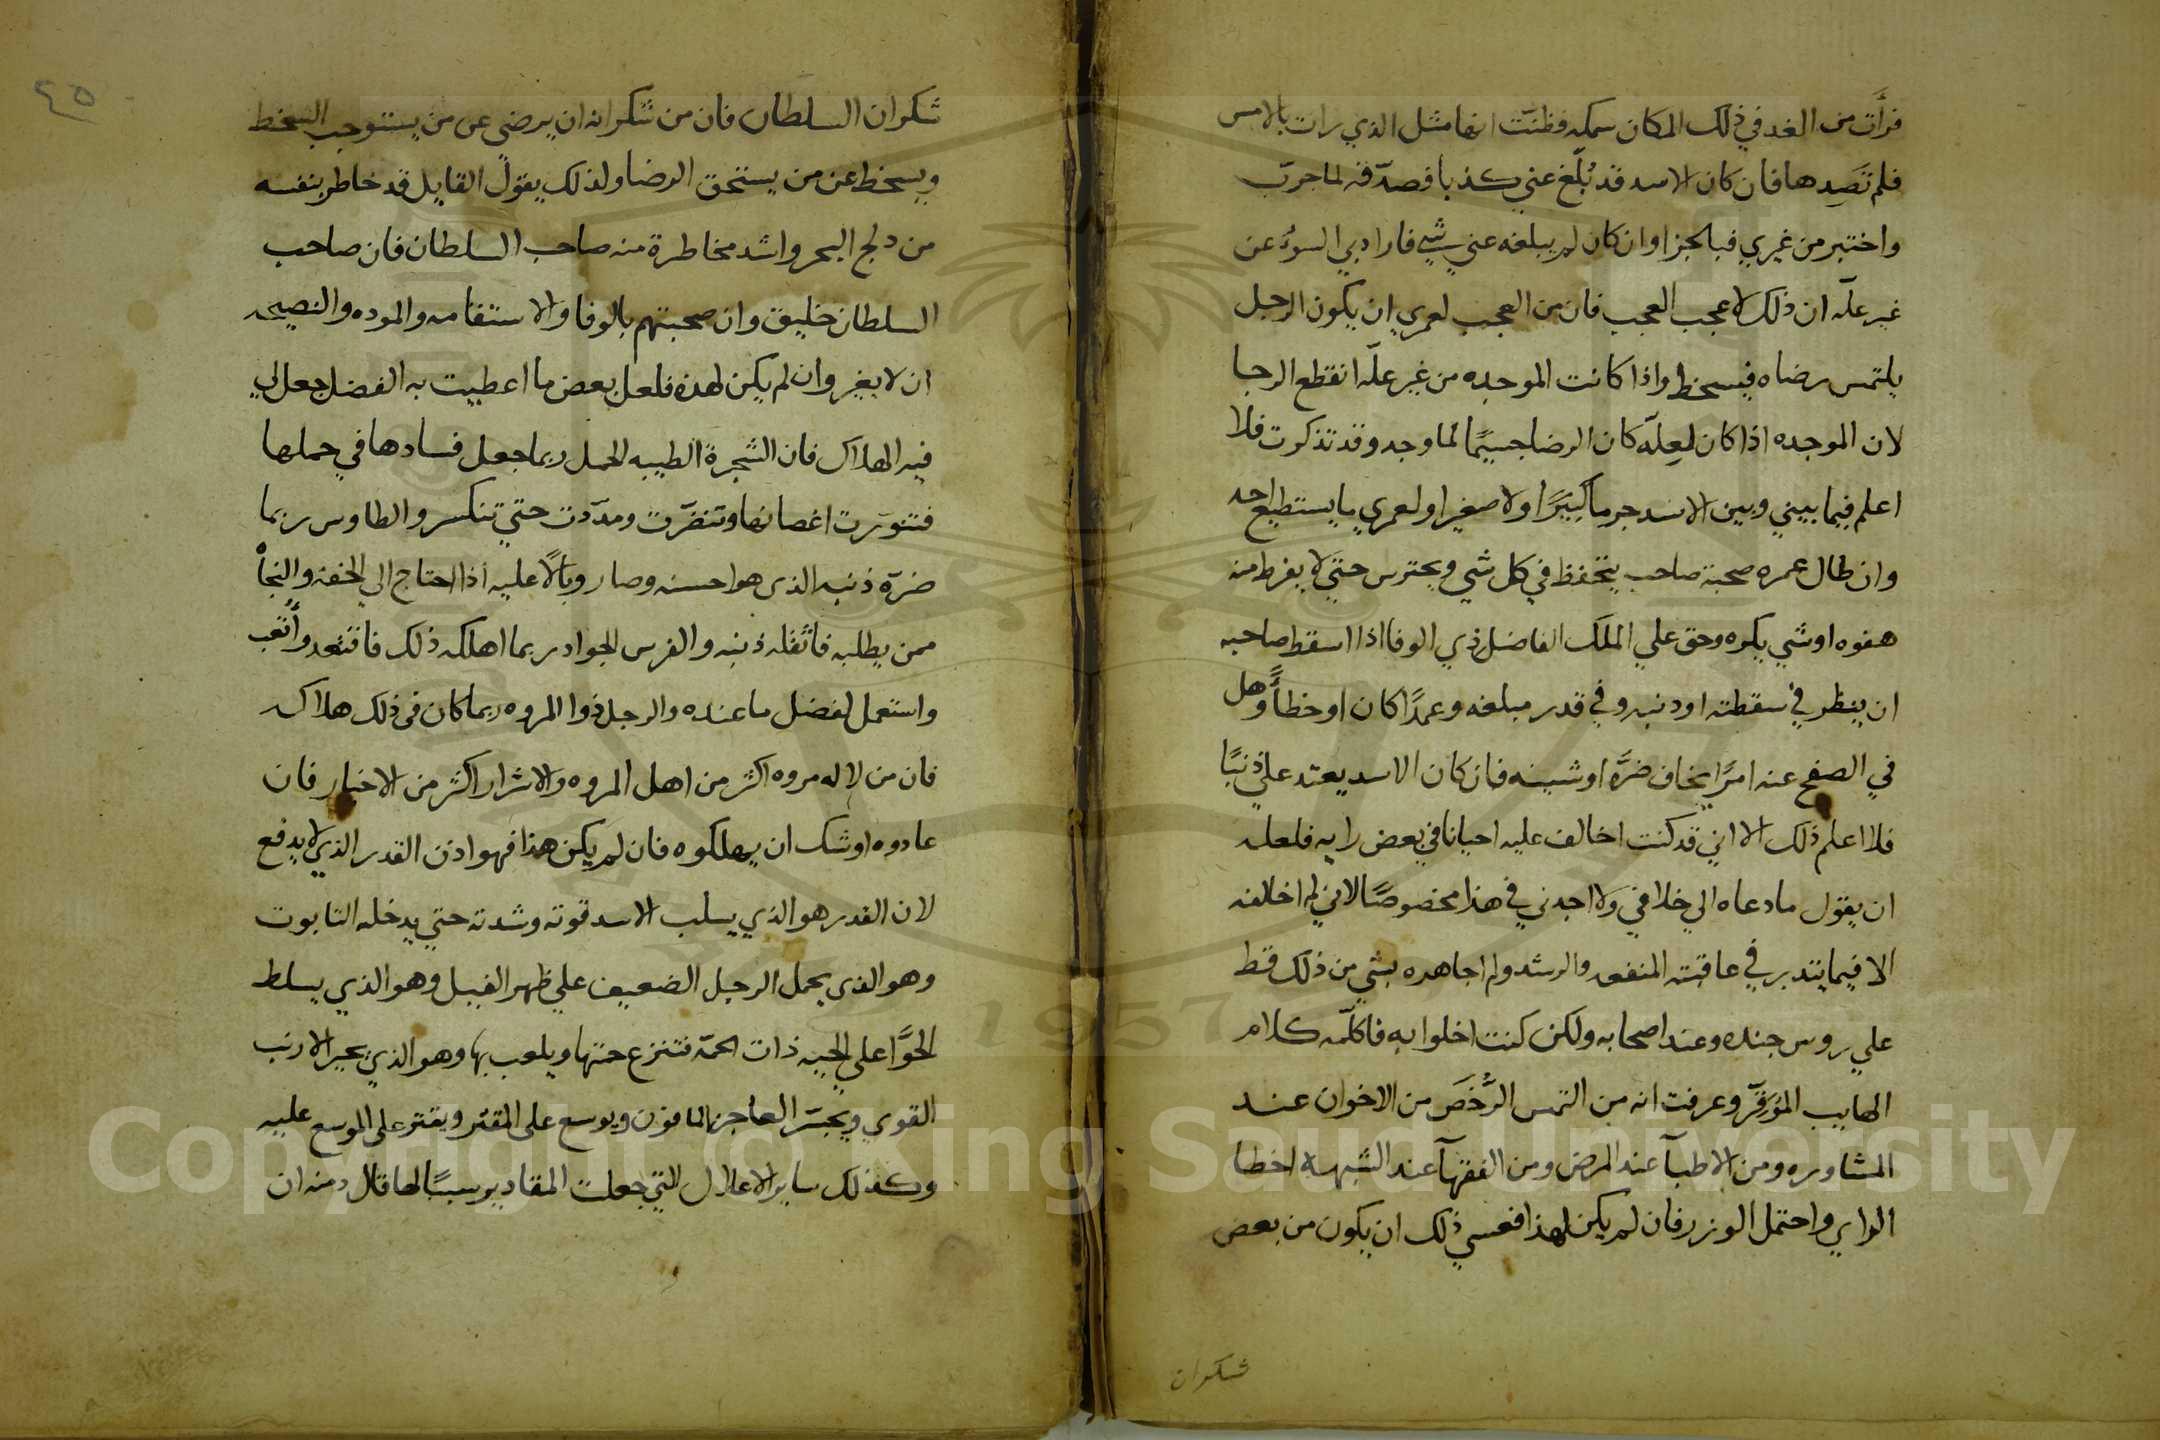 فرأت من الغد في ذلك المكان سمكه فظنت انها مثل الذي رات بالامس
فلم تصدها فان كان الاسد قد بُلّغ عني كذبا فصدّقه لما جرّب
واختبر من غيري فبالجزا وان كان لم يبلغه عني شي فارادبي السوء عن
غير علّه ان ذلك لاعجب العجب فان من العجب لعمري ان يكون الرجل
يلتمس رضاه فيسخط واذا كانت الموجده من غير علّه انقطع الرجا
لان الموجده اذا كان لعِلّه كان الرضا جسيمًا لما وجد وقد تذكرت فلا
اعلم فيما بيني وبين الاسد جرما كبيرًا ولا صغيرا ولعمري ما يستطيع احد
وان طال عمره صحبة صاحب يتحفظ في كل شي ويحترس حتي لا يفرط منه
هفوه او شي يكره وحق علي الملك الفاضل ذي الوفا اذا اسقط صاحبه
ان ينظر في سقطته او ذنبه وفي قدر مبلغه وعمدًا كان او خطأً وهل
في الصفح عنه امرًا يخاف ضرّه او شينه فان كان الاسد يعتد علي ذنبًا
فلا اعلم ذلك الا اني قد كنت اخالف عليه احيانا في بعض رايه فلعله
ان يقول ما دعاه الي خلافي ولا اجدني في هذا مخصوصًا لاني لم اخالفه
الا فيما يتدبر في عاقبته المنفعه والرشد ولم اجاهده بشي من ذلك قط
علي روس جنده وعند اصحابه ولكن كنت اخلوا به فاكلّمه كلام
الهايب الموَقِرّ وعرفت انه من التمس الرُّخَص من الاخوان عند
المشاوره ومن الاطبآ عند المرض ومن الفقهآ عند الشبهه اخطا
الراي واحتمل الوزر فان لم يكن لهذا فعسي ذلك ان يكون من بعض
شكران
٤٥
شكران السلطان فان من شكرانه ان يرضي عن من يستوجب السخط
ويسخط عن من يستحق الرضا ولذلك يقول القايل قد خاطر بنفسه
من دلج البحر واشد مخاطرة منه صاحب السلطان فان صاحب
السلطان خليق وان صحبتهم بالوفا والاستقامه والموده والنصيحه
ان لا يغير وان لم يكن لهذه فلعل بعض ما اعطيت به الفضل جعل لي
فيه الهلاك فان الشجرة الطيبه الحمل ربما جعل فسادها في حملها
فتنورت اغصانها وتنضّرت ومدّدت حتي تنكسر والطاوس ربما
ضرّه ذنبه الذي هو احسنه وصار وبالًا عليه اذا احتاج الي الخفه والنجأ
ممن يطلبه فاثقله ذنبه والفرس الجواد ربما اهلكه ذلك فاقتعد وأتعب
واستعمل لفضل ما عنده والرجل ذوا المروه ربما كان في ذلك هلاكه
فان من لاله مروه اكثر من اهل المروه والاشرار اكثر من الاخيار فان
عادوه اوشك ان يهلكوه فان لم يكن هذا فهو اذن القدر الذي لا يدفع
لان القدر هو الذي يسلب الاسد قوته وشدته حتي يدخله التابوت
وهو الذي يحمل الرجل الضعيف علي ظهر الفيل وهو الذي يسلط
الحوّا علي الحيه ذات الحمّه فتنزع حمتها ويلعب بها وهو الذي يحير الارنب
القوي ويجسّر العاجز المافون ويوسع علي المقتر ويقتر علي الموسع عليه
وكذلك ساير الاعلال التي جعلت المقادير سببًا لها قال دمنه ان
Copyright © King Saud University
1957